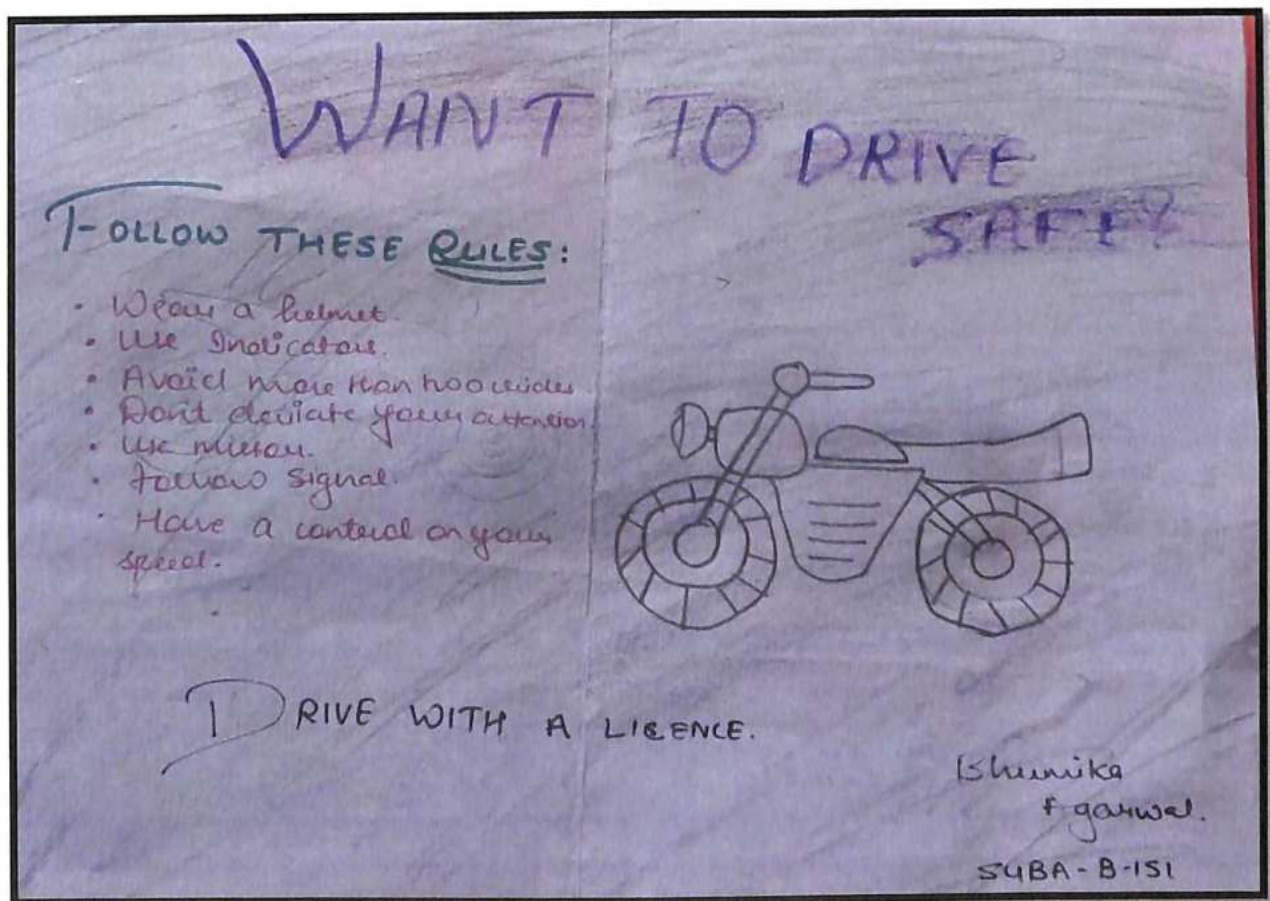 WANT TO DRIVE
SAFE?
FOLLOW THESE RULES:
• Wear a helmet.
• Use Indicators.
• Avoid more than two rides
• Dont deviate your attention.
• Use mirror.
• Follow Signal.
• Have a control on your
speed.
DRIVE WITH A LICENCE.
Bhumika
Agarwal.
SYBA-B-151